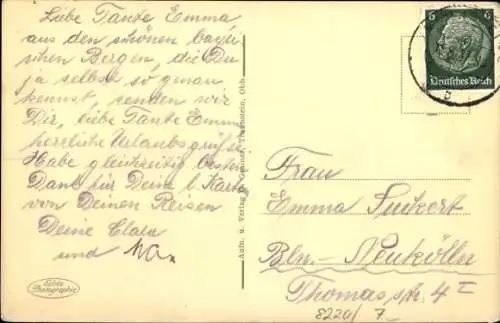 Liebe Tante Emma,
aus den schönen bayri-
schen Bergen, die Du
ja selbst so genau
kennst, senden wir
Dir, liebe Tante Emma
herrliche Urlaubsgrüße.
Habe gleichzeitig besten
Dank für Deine l. Karte
von Deinen Reisen
Deine Clara
und
Echte
Photographie
Aufn. u. Verlag Traunstein, Obb.
6 6
Deutsches Reich
Frau
Emma
Bln.-Neukölln
Thomasstr. 4 I
8220/7